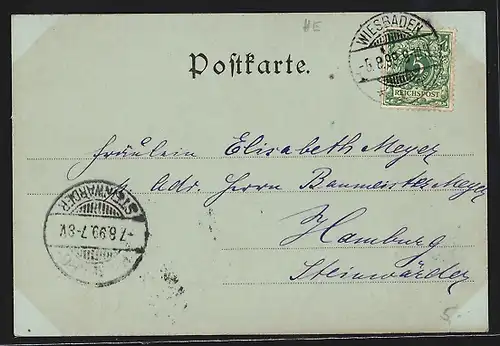 HE
WIESBADEN
-5.8.99.
REICHSPOST
Postkarte.
Fräulein Elisabeth Meyer
p. Adr. Herrn Baumeister Meyer
Hamburg
Steinwärder
STEINWARDER
-7.8.99.7-8V.
5.